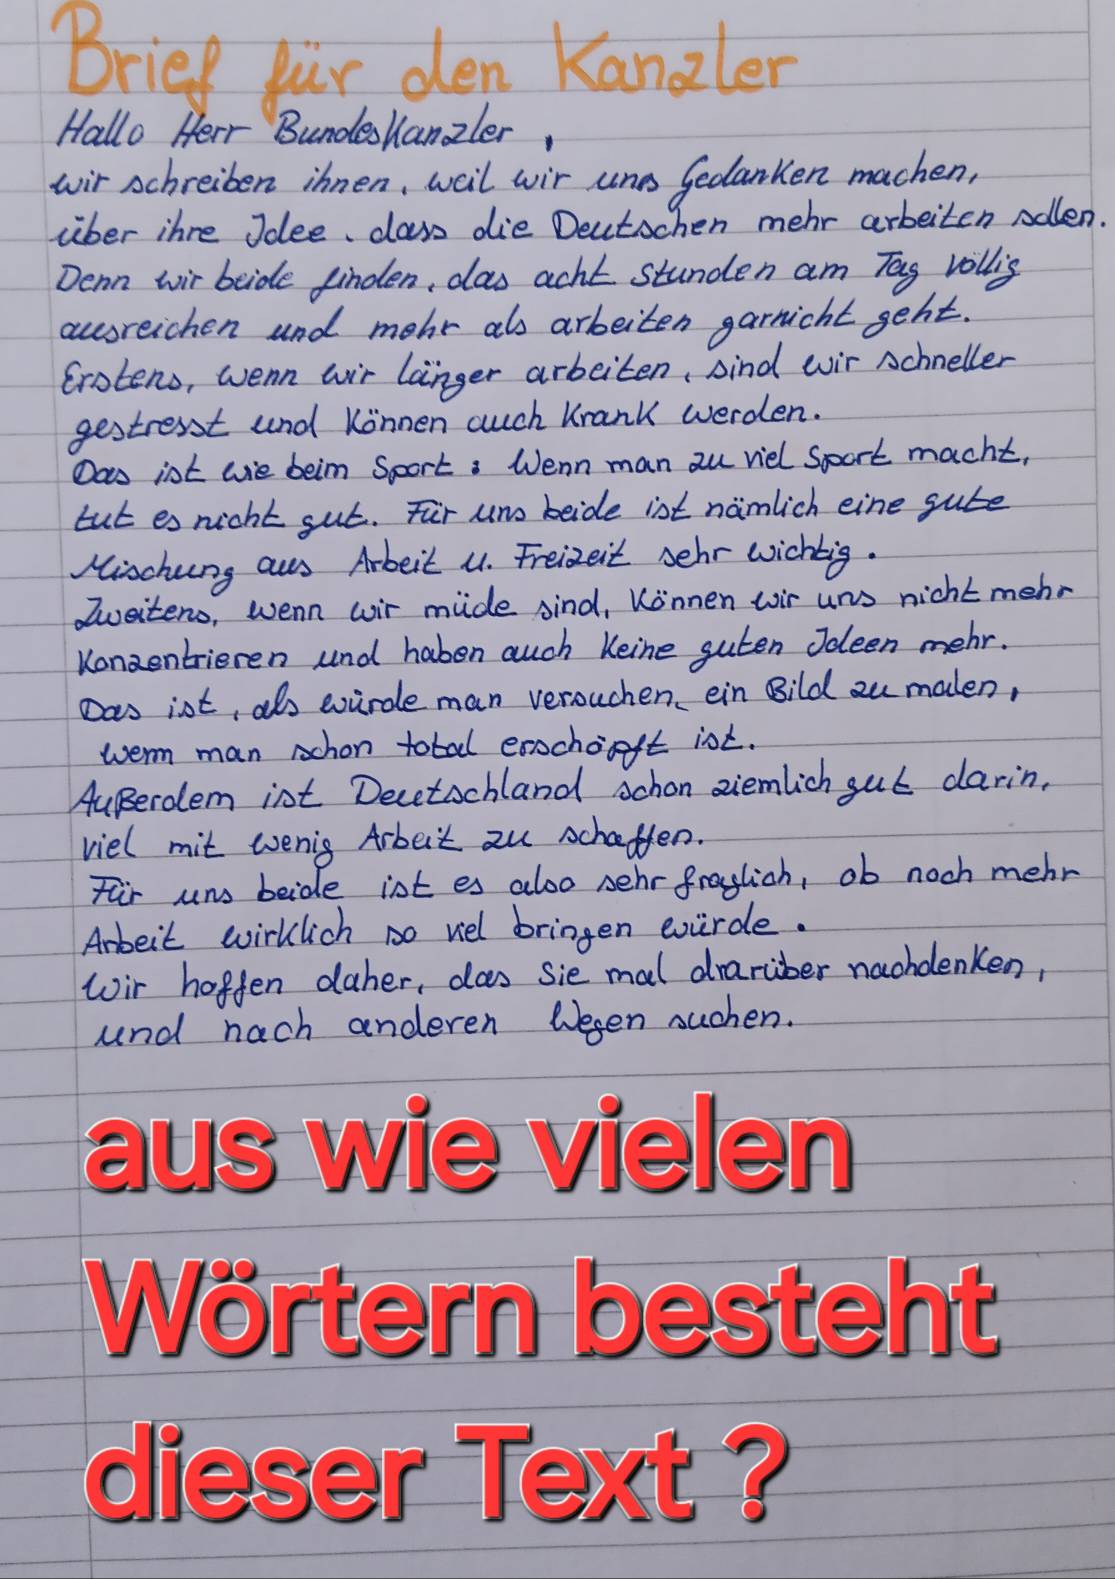 Brief für den Kanzler
Hallo Herr BundesKanzler,
wir schreiben ihnen, weil wir uns Gedanken machen,
über ihre Idee, dass die Deutschen mehr arbeiten sollen.
Denn wir beide finden, das acht Stunden am Tag völlig
ausreichen und mehr als arbeiten garnicht geht.
Erstens, wenn wir länger arbeiten, sind wir schneller
gestresst und können auch Krank werden.
Das ist wie beim Sport: Wenn man zu viel Sport macht,
tut es nicht gut. Für uns beide ist nämlich eine gute
Mischung aus Arbeit u. Freizeit sehr wichtig.
Zweitens, wenn wir müde sind, können wir uns nicht mehr
konzentrieren und haben auch keine guten Ideen mehr.
Das ist, als würde man versuchen, ein Bild zu malen,
wenn man schon total erschöpft ist.
Außerdem ist Deutschland schon ziemlich gut darin,
viel mit wenig Arbeit zu schaffen.
Für uns beide ist es also sehr fraglich, ob noch mehr
Arbeit wirklich so viel bringen würde.
Wir hoffen daher, das Sie mal drarüber nachdenken,
und nach anderen Wegen suchen.
aus wie vielen
Wörtern besteht
dieser Text ?